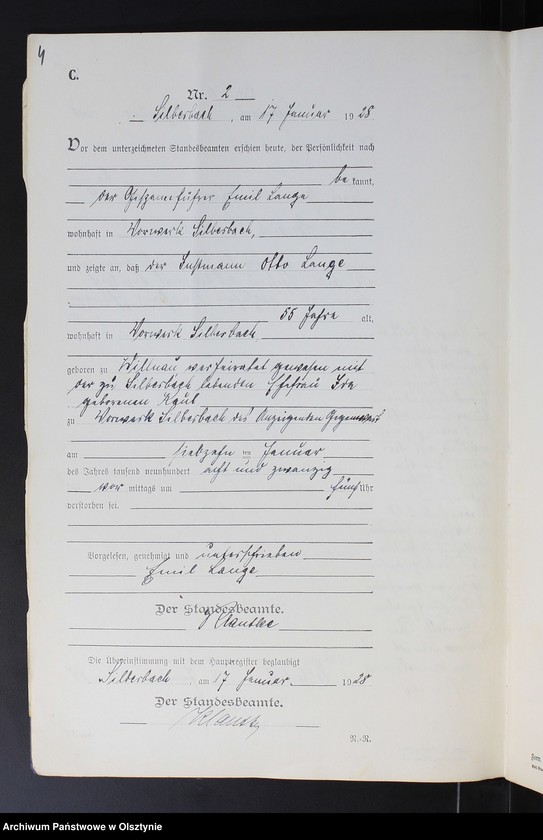 4
C.
Nr. 2
Silberbach, am 17 Januar 1928
Vor dem unterzeichneten Standesbeamten erschien heute, der Persönlichkeit nach
be kannt,
der Gespannführer Emil Lange
wohnhaft in Vorwerk Silberbach,
und zeigte an, daß der Instmann Otto Lange
55 Jahre alt,
wohnhaft in Vorwerk Silberbach
geboren zu Willnau verheiratet gewesen mit
der zu Silberbach lebenden Ehefrau Ida
geborenen
zu Vorwerk Silberbach des Anzeigenden Gegenwart
am siebzehn ten Januar
des Jahres tausend neunhundert acht und zwanzig
vor mittags um fünf Uhr
verstorben sei.
Vorgelesen, genehmigt und unterschrieben
Emil Lange
Der Standesbeamte.
Die Übereinstimmung mit dem Hauptregister beglaubigt
Silberbach, am 17 Januar 1928
Der Standesbeamte.
R.-R.
Archiwum Państwowe w Olsztynie